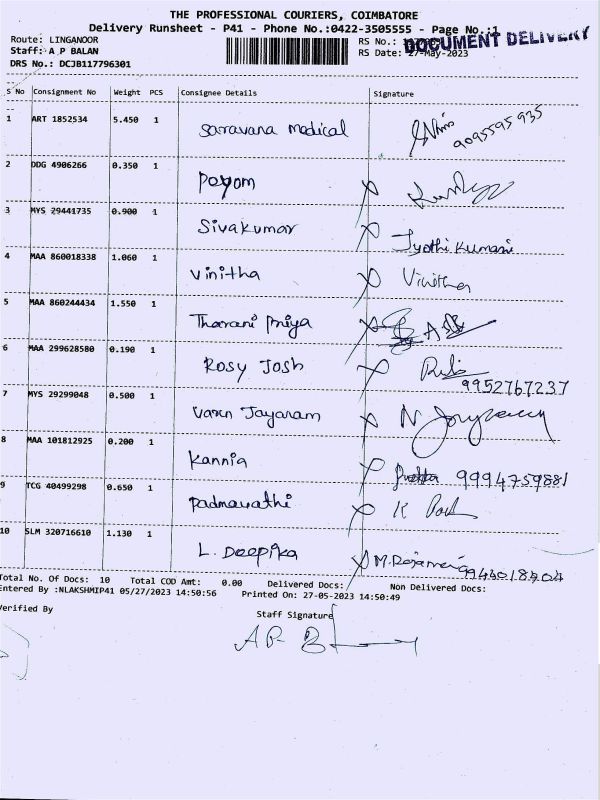 THE PROFESSIONAL COURIERS, COIMBATORE
Delivery Runsheet - P41 - Phone No.:0422-3505555 - Page No.:1
Route: LINGANOOR RS No.:
DOCUMENT DELIVERY
Staff: A P BALAN RS Date: 27-May-2023
DRS No.: DCJB117796301
S No Consignment No Weight PCS Consignee Details Signature
1 ART 1852534 5.450 1 Saravana Medical 9095595935
2 DDG 4906266 0.350 1 Payom
3 MYS 29441735 0.900 1 Sivakumar Jyothi Kumari
4 MAA 860018338 1.060 1 Vinitha Vinitha
5 MAA 860244434 1.550 1 Tharani Priya
6 MAA 299628580 0.190 1 Rosy Josh 9952767237
7 MYS 29299048 0.500 1 Varun Jayaram
8 MAA 101812925 0.200 1 Kannia 9994759881
9 TCG 40499298 0.650 1 Padmavathi K
10 SLM 320716610 1.130 1 L. Deepika M.Rajamani
Total No. Of Docs: 10 Total COD Amt: 0.00 Delivered Docs: Non Delivered Docs:
Entered By :NLAKSHMIP41 05/27/2023 14:50:56 Printed On: 27-05-2023 14:50:49
Verified By Staff Signature